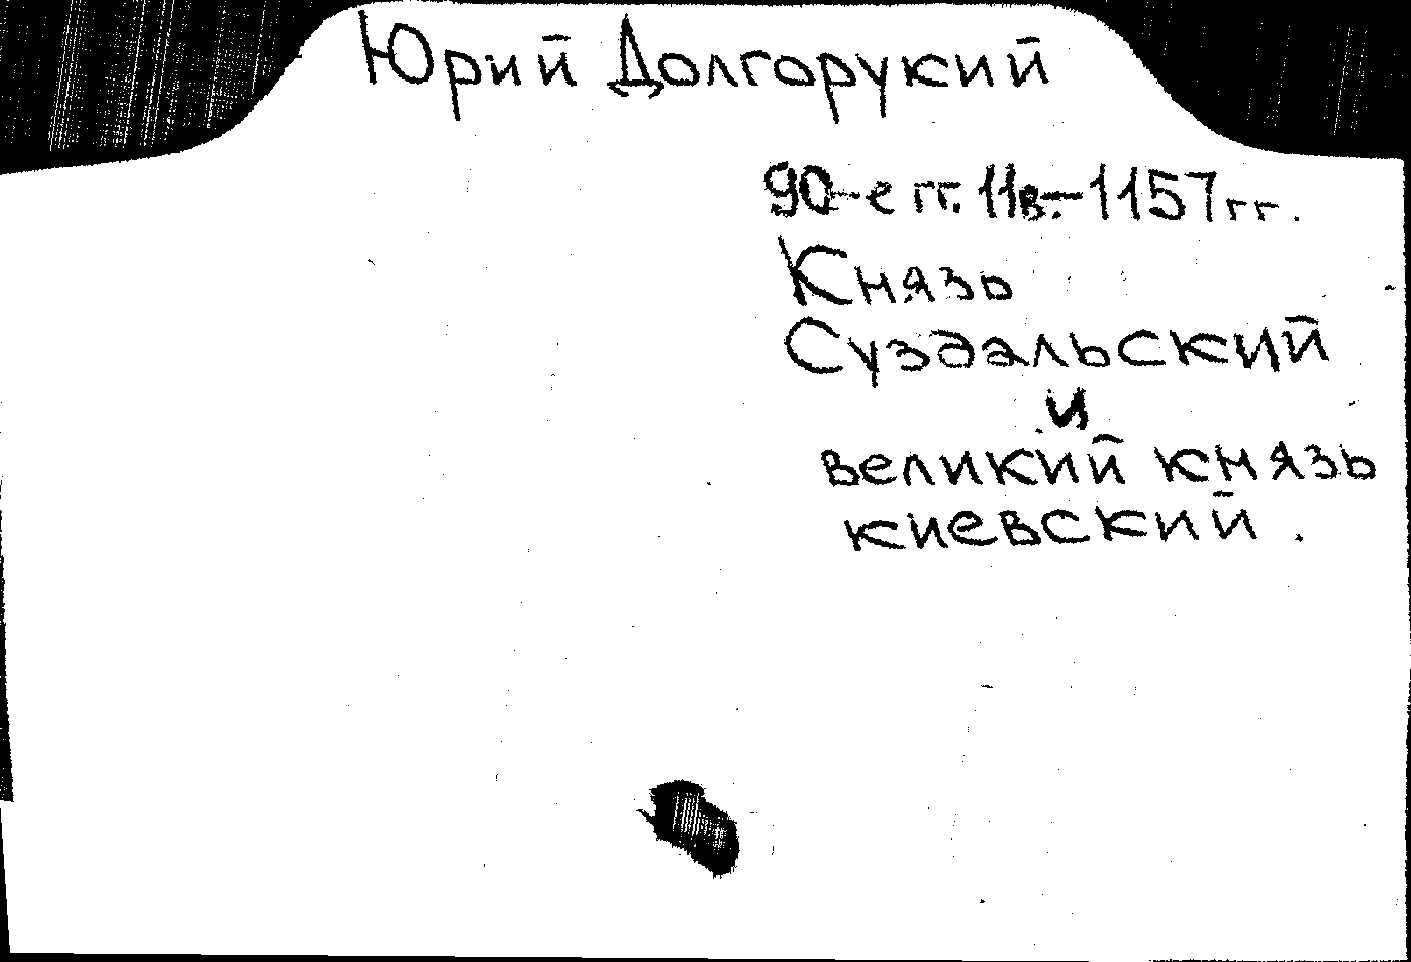 Юрий Долгорукий
90-е гг. 11в.-1157гг.
Князь
Суздальский
и
великий князь
киевский.